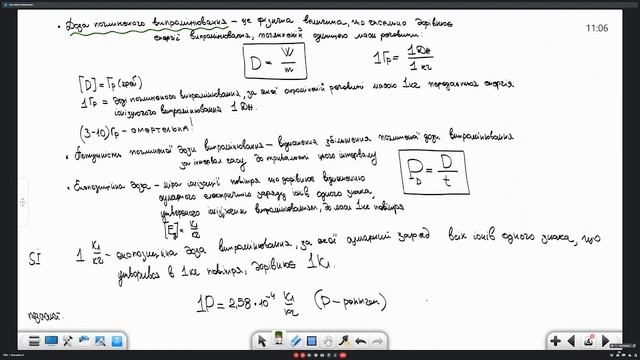 • Доза поглиненого випромінювання – це фізична величина, що чисельно дорівнює
енергії випромінювання, поглиненій одиницею маси речовини:
11:06
D = W/m
1Гр = 1Дж/1кг
[D] = Гр (грей)
1Гр = дозі поглиненого випромінювання, за якої опроміненій речовині масою 1кг передається енергія
іонізуючого випромінювання 1Дж.
(3-10)Гр – смертельна!
• Потужність поглиненої дози випромінювання – відношення збільшення поглиненої дози випромінювання
за інтервал часу до тривалості цього інтервалу
P_D = D/t
• Експозиційна доза – міра іонізації повітря, що дорівнює відношенню
сумарного електричного заряду іонів одного знака,
утвореного іонізуючим випромінюванням, до маси 1кг повітря
= Кл/кг
SI 1 Кл/кг – експозиційна доза випромінювання, за якої сумарний заряд всіх іонів одного знака, що
утворився в 1кг повітря, дорівнює 1Кл.
1Р = 2,58·10⁻⁴ Кл/кг (Р – рентген)